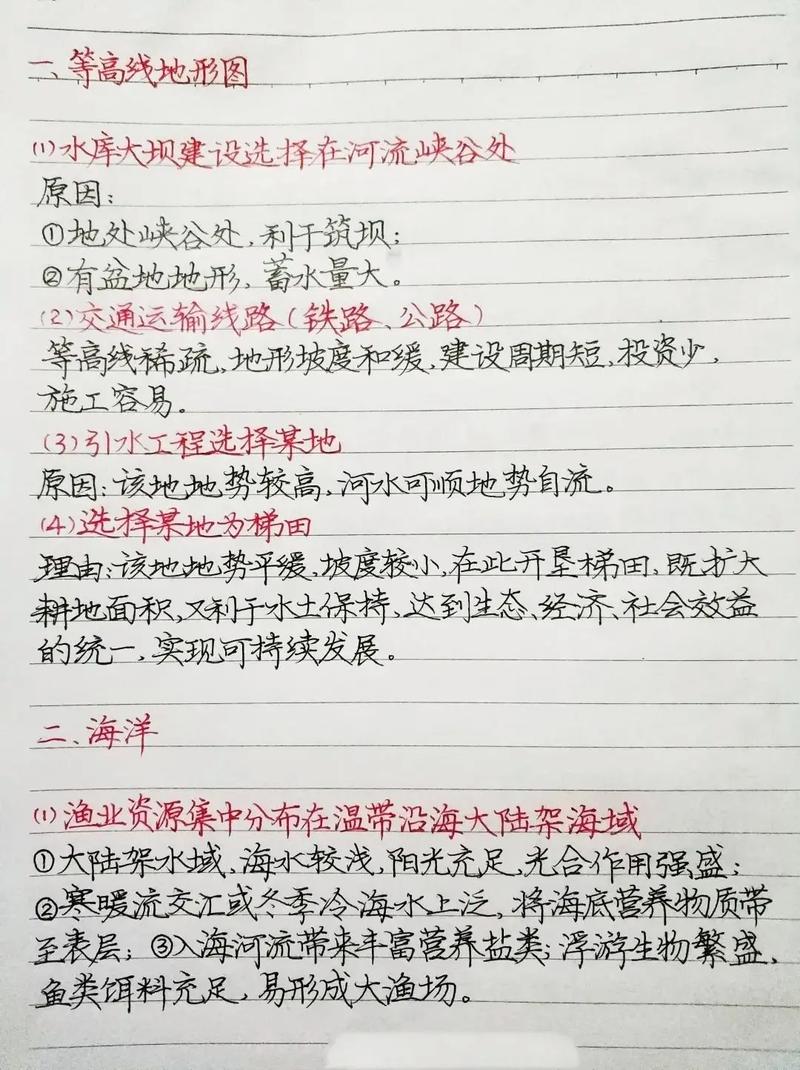 一、等高线地形图
(1)水库大坝建设选择在河流峡谷处
原因:
①地处峡谷处,利于筑坝;
②有盆地地形,蓄水量大。
(2)交通运输线路(铁路、公路)
等高线稀疏,地形坡度和缓,建设周期短,投资少,
施工容易。
(3)引水工程选择某地
原因:该地地势较高,河水可顺地势自流。
(4)选择某地为梯田
理由:该地地势平缓,坡度较小,在此开垦梯田,既扩大
耕地面积,又利于水土保持,达到生态、经济、社会效益
的统一,实现可持续发展。
二、海洋
(1)渔业资源集中分布在温带沿海大陆架海域
①大陆架水域,海水较浅,阳光充足,光合作用强盛;
②寒暖流交汇或冬季冷海水上泛,将海底营养物质带
至表层;③入海河流带来丰富营养盐类;浮游生物繁盛,
鱼类饵料充足,易形成大渔场。